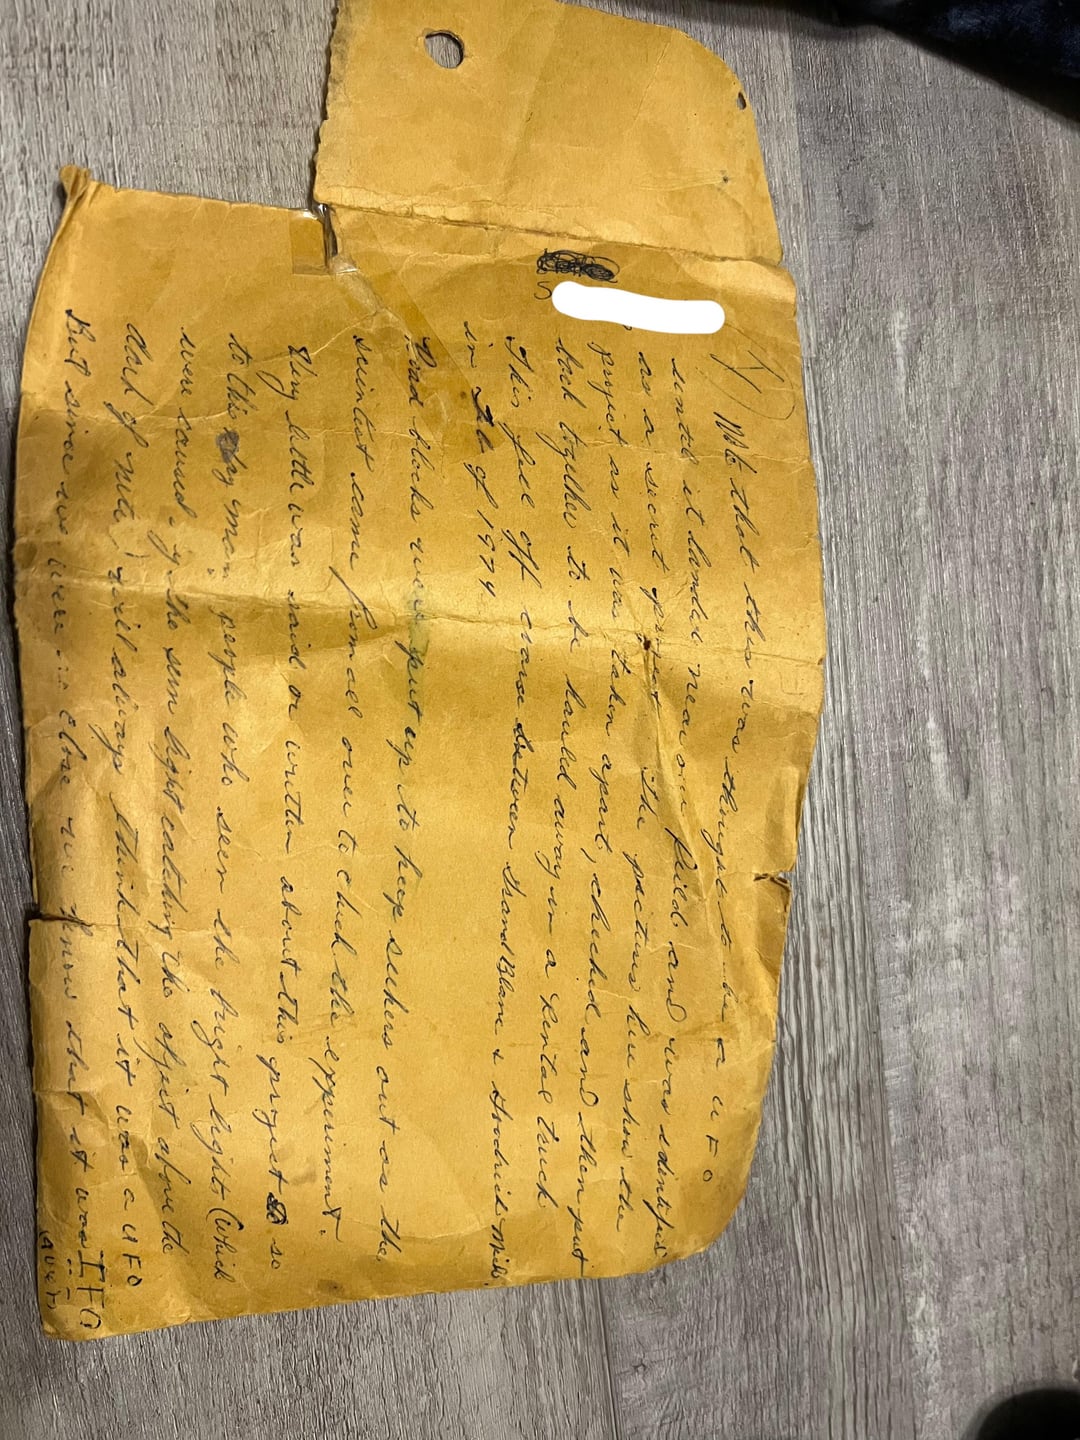 Note that this was thought to be a UFO
until it landed near our field. and was identified
as a secret project The pictures here show the
project as it was taken apart, checked and then put
back together to be hauled away in a Rental truck
This fell off course between Grand Blanc & Goodrich Mich
in of 1974
Road blocks were put up to keep seekers out as the
scientist came from all over to check the expperiment.
Very little was said or written about this project so
to this day man. people who seen the bright light (which
were caused by the sun light catching the object after the
dark of nite) will always think that it was a UFO
But since we were so close we know that it was IFO
(over)